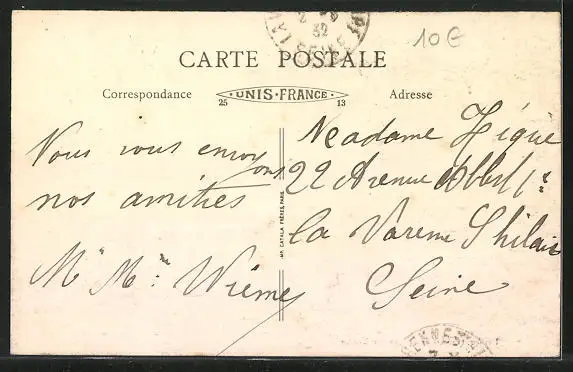 10€
32
CARTE POSTALE
Correspondance
UNIS-FRANCE
25 13
Adresse
Nous vous envoyons
nos amitiés
Mr Mme Wiéme
IMP. CATALA FRÈRES, PARIS
Madame
22 Avenue
la Varenne St hilaire
Seine